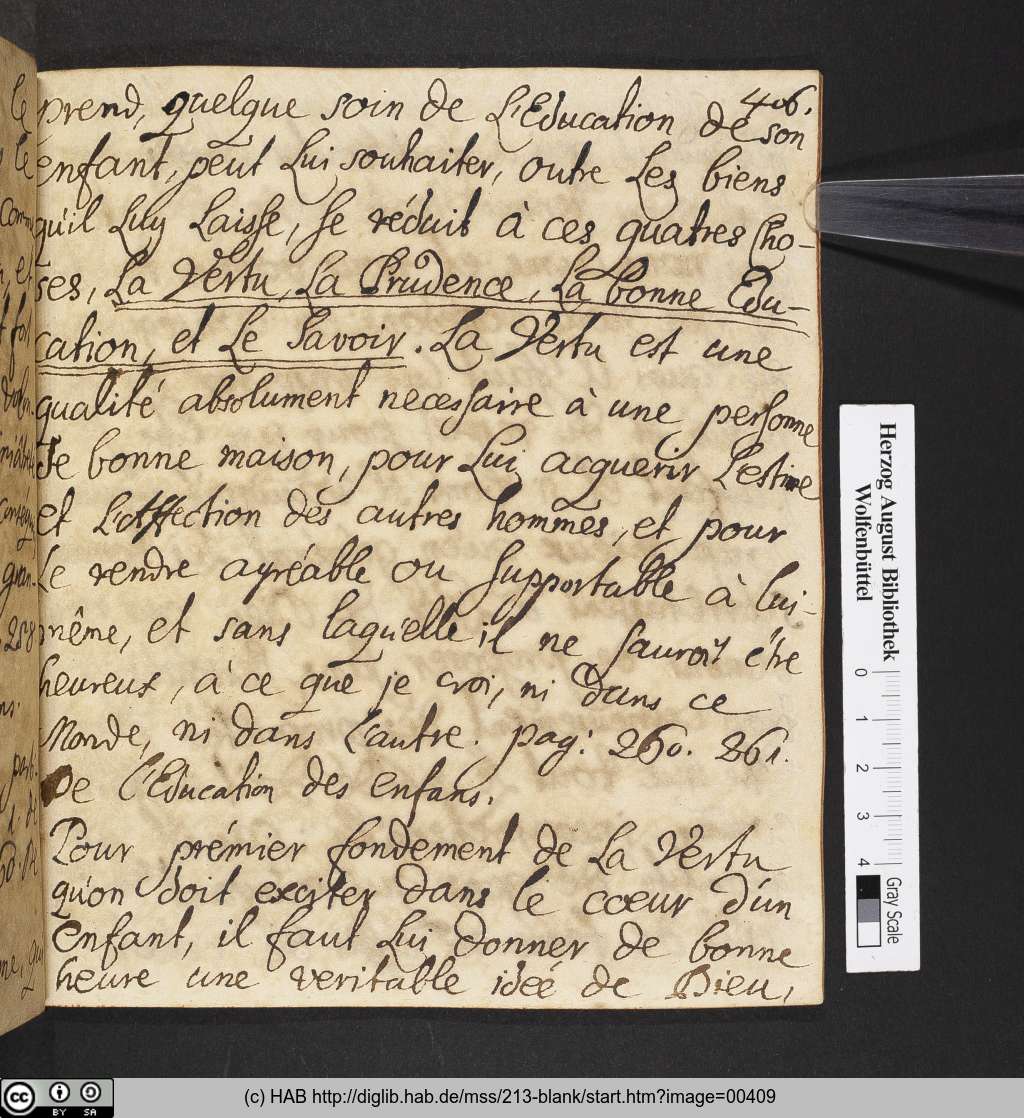 406.
prend, quelque soin de L'Education de son
enfant, peut Lui souhaiter, outre Les biens
qu'il Luy Laisse, se réduit à ces quatres cho-
ses, La Vertu, La Prudence, La bonne Edu-
cation, et Le savoir. La Vertu est une
qualité absolument necessaire à une personne
de bonne maison, pour Lui acquerir L'estime
et L'affection des autres hommes, et pour
Le rendre agréable ou supportable à lui-
même, et sans laquelle il ne sauroit être
heureux, à ce que je croi, ni dans ce
Monde, ni dans l'autre. pag: 260. 261.
De l'Education des enfans.
Pour prémier fondement de La Vertu
qu'on doit exciter dans le coeur d'un
enfant, il faut Lui donner de bonne
heure une veritable idée de Dieu,
Herzog August Bibliothek
Wolfenbüttel
0 1 2 3 4
Gray Scale
(c) HAB http://diglib.hab.de/mss/213-blank/start.htm?image=00409
cc BY SA